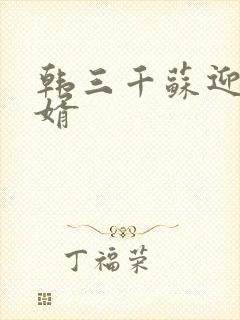 韩三千蘇迎
婿
丁福荣